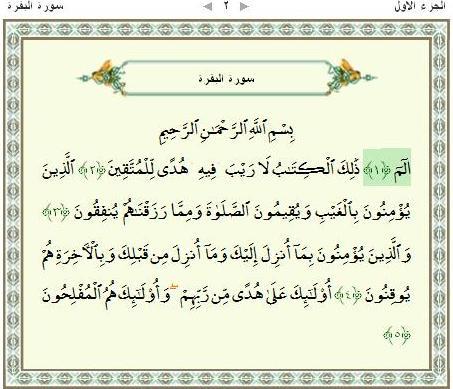 الجزء الأول
٢
سورة البقرة
سورة البقرة
بِسْمِ ٱللَّهِ ٱلرَّحْمَـٰنِ ٱلرَّحِيمِ
الٓمٓ ﴿١﴾ ذَٰلِكَ ٱلْكِتَـٰبُ لَا رَيْبَ فِيهِ هُدًى لِّلْمُتَّقِينَ ﴿٢﴾ ٱلَّذِينَ
يُؤْمِنُونَ بِٱلْغَيْبِ وَيُقِيمُونَ ٱلصَّلَوٰةَ وَمِمَّا رَزَقْنَـٰهُمْ يُنفِقُونَ ﴿٣﴾
وَٱلَّذِينَ يُؤْمِنُونَ بِمَآ أُنزِلَ إِلَيْكَ وَمَآ أُنزِلَ مِن قَبْلِكَ وَبِٱلْـَٔاخِرَةِ هُمْ
يُوقِنُونَ ﴿٤﴾ أُو۟لَـٰٓئِكَ عَلَىٰ هُدًى مِّن رَّبِّهِمْ ۖ وَأُو۟لَـٰٓئِكَ هُمُ ٱلْمُفْلِحُونَ
﴿٥﴾